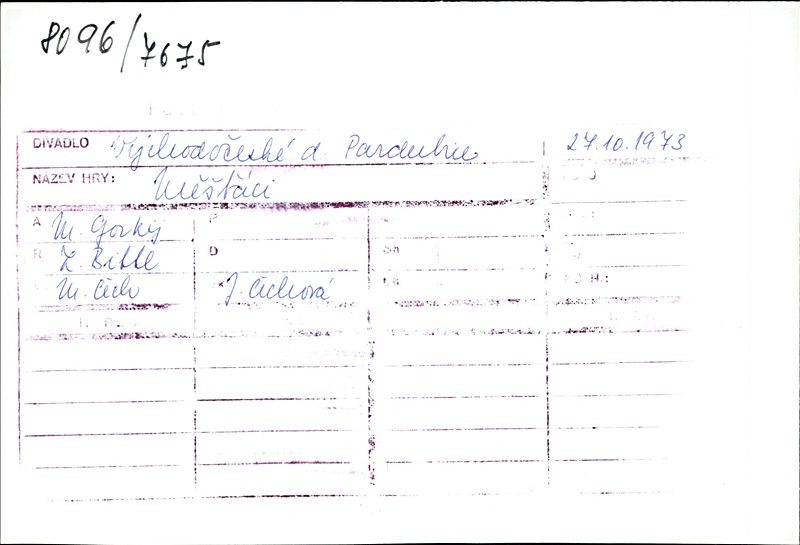 8096/7675
DIVADLO Východočeské d. Pardubice 27.10.1973
NÁZEV HRY: Měšťáci
A M. Gorkij P
R Z. Bittl D
M. Cich J. Cichová